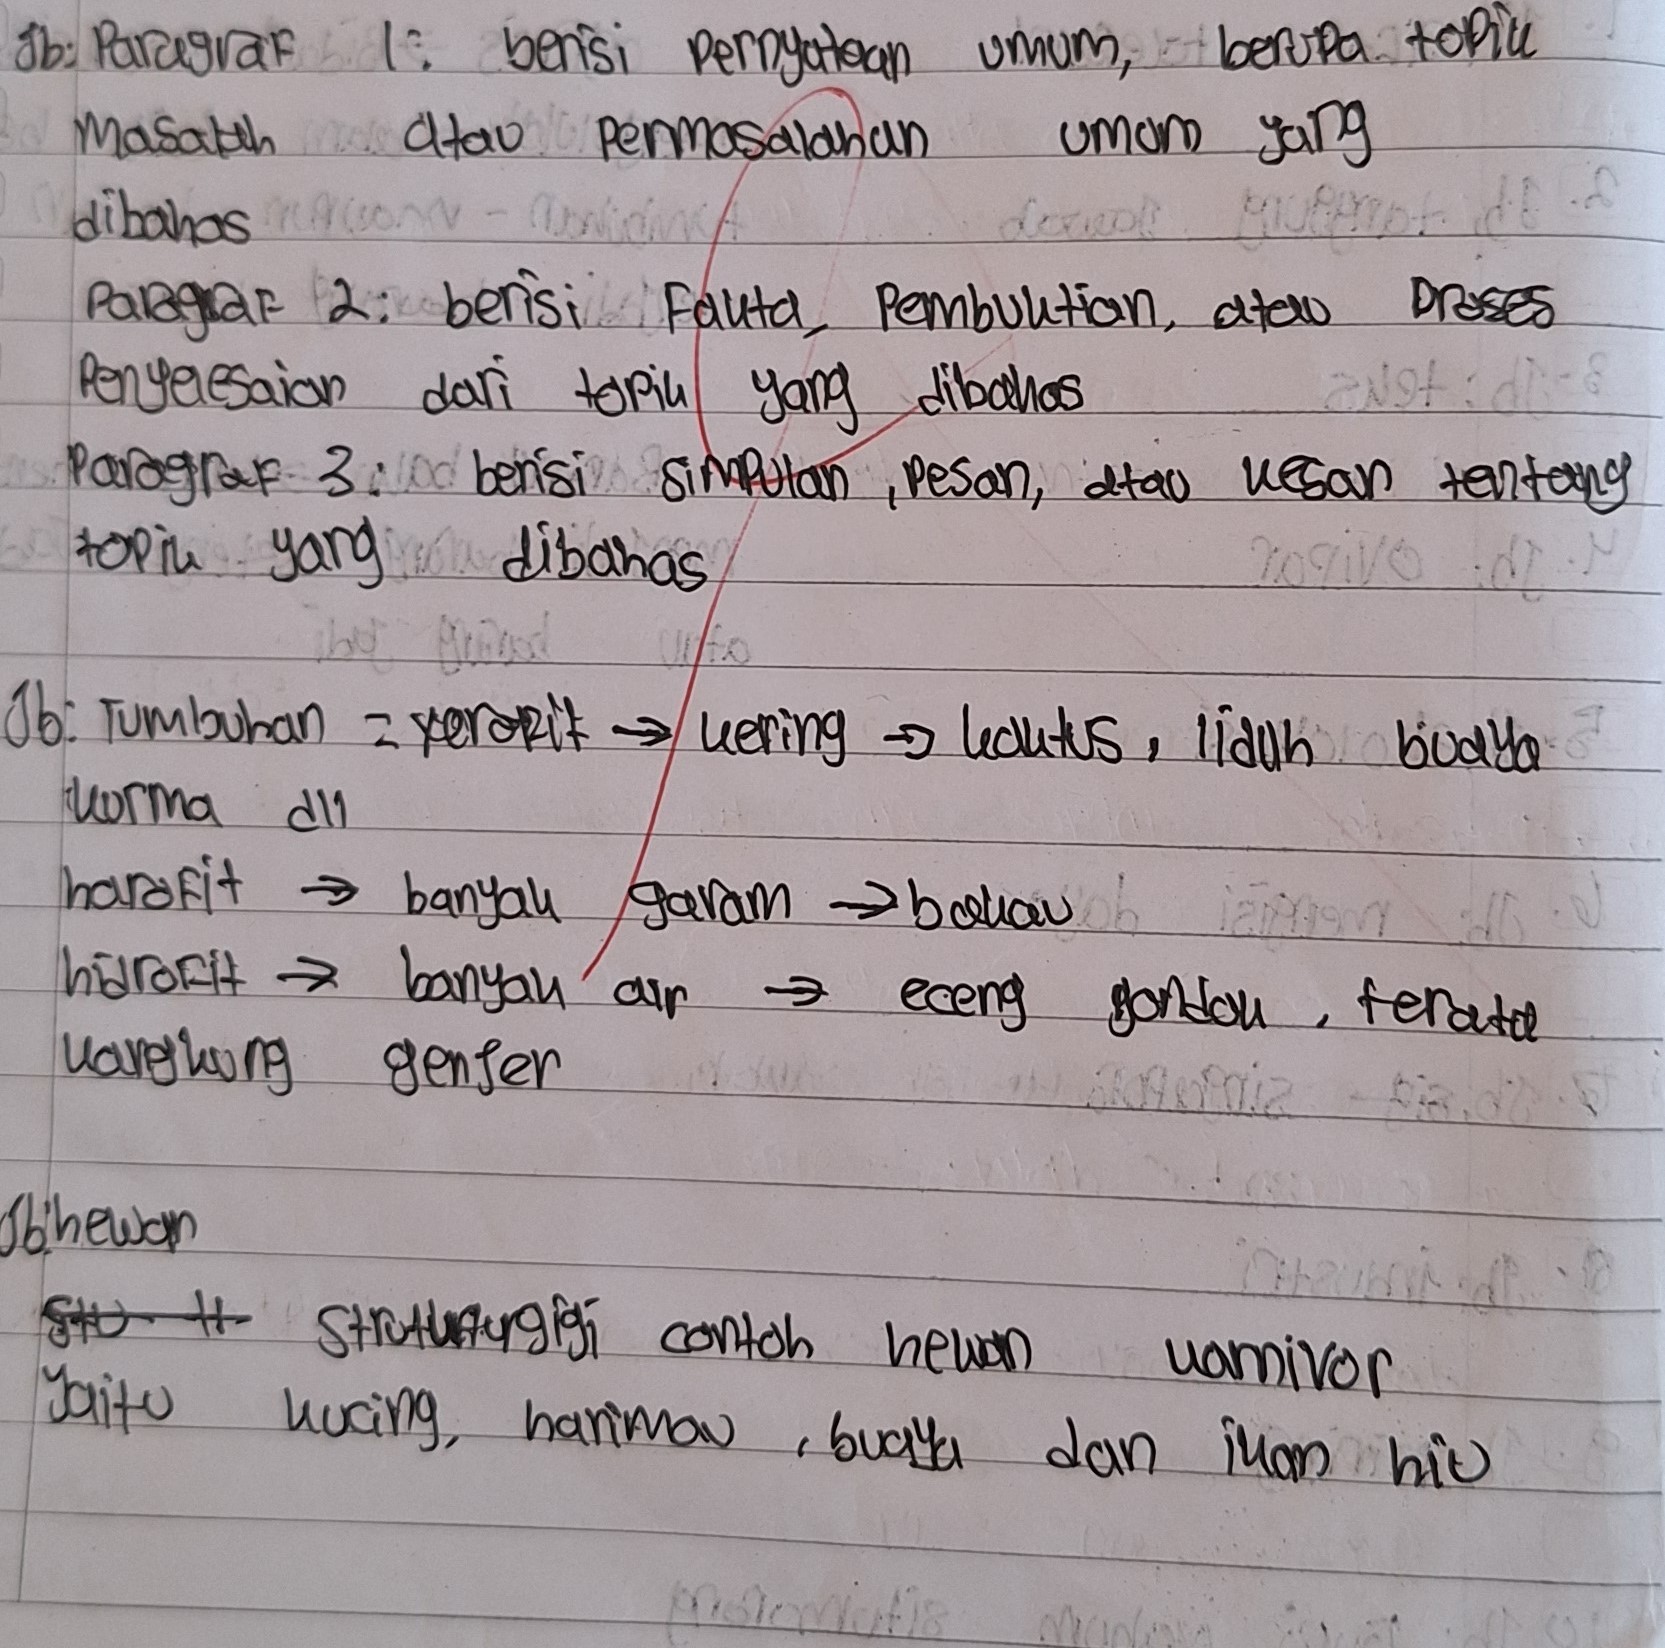 Jb: Paragraf 1: berisi pernyataan umum, berupa topik
Masalah atau permasalahan umum yang
dibahas
Paragraf 2: berisi Fakta, Pembuktian, atau Proses
Penyelesaian dari topik yang dibahas
Paragraf 3: berisi simpulan, pesan, atau kesan tentang
topik yang dibahas
Jb: Tumbuhan = xerofit → kering → kaktus, lidah buaya
kurma dll
harofit → banyak garam → bakau
hidrofit → banyak air → eceng gondok, terate
kangkung genjer
Jb: hewan
Struktur gigi contoh hewan karnivor
Yaitu kucing, harimau, buaya dan ikan hiu